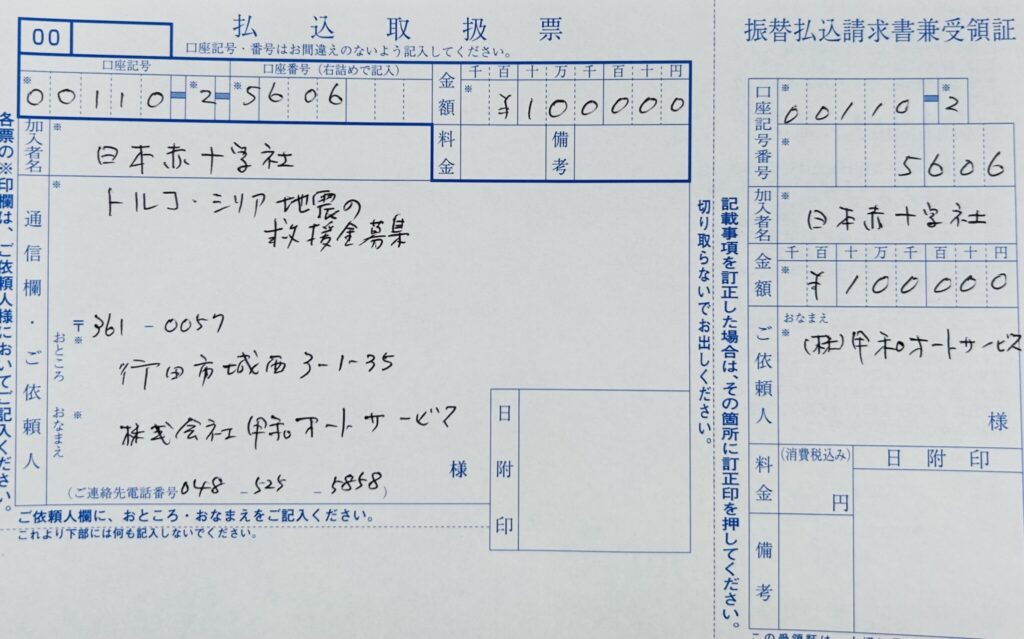 払込取扱票
00
口座記号・番号はお間違えのないよう記入してください。
口座記号 口座番号（右詰めで記入）
※ 00110-※2-※5606
金額 千百十万千百十円
※ ¥100000
加入者名 ※ 日本赤十字社
料金 備考
通信欄・ご依頼人
※ トルコ・シリア地震の
救援金募集
〒361-0057
おところ ※ 行田市城西3-1-35
おなまえ ※ 株式会社甲和オートサービス
様
（ご連絡先電話番号 048-525-5858）
日附印
ご依頼人欄に、おところ・おなまえをご記入ください。
これより下部には何も記入しないでください。
各票の※印欄は、ご依頼人様においてご記入ください。
切り取らないでお出しください。
記載事項を訂正した場合は、その箇所に訂正印を押してください。
振替払込請求書兼受領証
口座記号番号 ※ 00110-※2
※ 5606
加入者名 ※ 日本赤十字社
金額 千百十万千百十円
※ ¥100000
ご依頼人 おなまえ
※ （株）甲和オートサービス
様
料金 （消費税込み）
円
日附印
備考